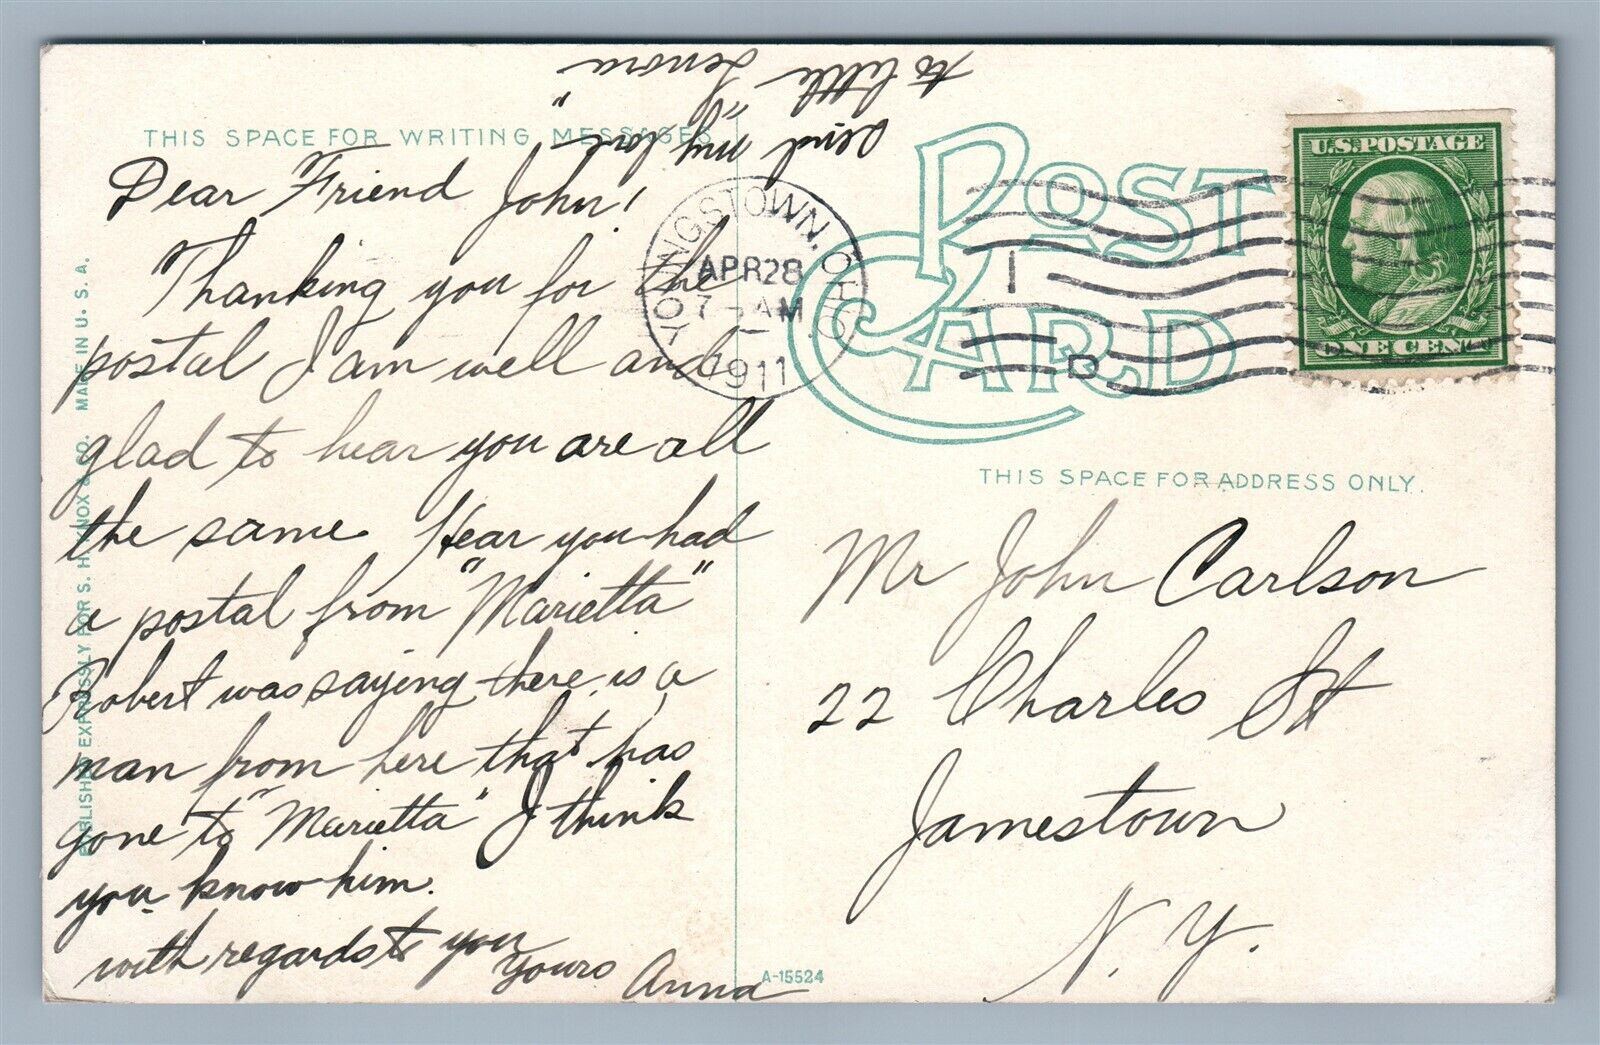 THIS SPACE FOR WRITING MESSAGES
Dear Friend John!
Thanking you for the
postal I am well and
glad to hear you are all
the same. Hear you had
a postal from "Marietta"
Robert was saying there is a
man from here that has
gone to "Marietta" I think
you know him.
with regards to you
Yours Anna
send my love
to little "Lenora"
PUBLISHED EXPRESSLY FOR S. H. KNOX & CO. MADE IN U. S. A.
YOUNGSTOWN, OHIO.
APR 28
7 - AM
1911
1
D
POST
CARD
U.S. POSTAGE
ONE CENT
THIS SPACE FOR ADDRESS ONLY.
Mr John Carlson
22 Charles St
Jamestown
N. Y.
A-15524